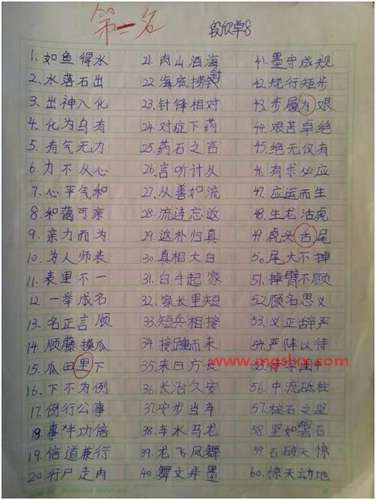 第一名
1. 如鱼得水
2. 水落石出
3. 出神入化
4. 化为乌有
5. 有气无力
6. 力不从心
7. 心平气和
8. 和蔼可亲
9. 亲力而为
10. 为人师表
11. 表里不一
12. 一举成名
13. 名正言顺
14. 顺藤摸瓜
15. 瓜田里下
16. 下不为例
17. 例行公事
18. 事半功倍
19. 倍道兼行
20. 行尸走肉
21. 肉山酒海
22. 海底捞针
23. 针锋相对
24. 对症下药
25. 药石之言
26. 言听计从
27. 从善如流
28. 流连忘返
29. 返朴归真
30. 真相大白
31. 白手起家
32. 家长里短
33. 短兵相接
34. 接踵而来
35. 来日方长
36. 长治久安
37. 安步当车
38. 车水马龙
39. 龙飞凤舞
40. 舞文弄墨
41. 墨守成规
42. 规行矩步
43. 步履为艰
44. 艰苦卓绝
45. 绝无仅有
46. 有求必应
47. 应运而生
48. 生龙活虎
49. 虎头舌尾
50. 尾大不掉
51. 掉臂不顾
52. 顾名思义
53. 义正辞严
54. 严阵以待
55. 待字闺中
56. 中流砥柱
57. 柱石之坚
58. 坚如磐石
59. 石破天惊
60. 惊天动地